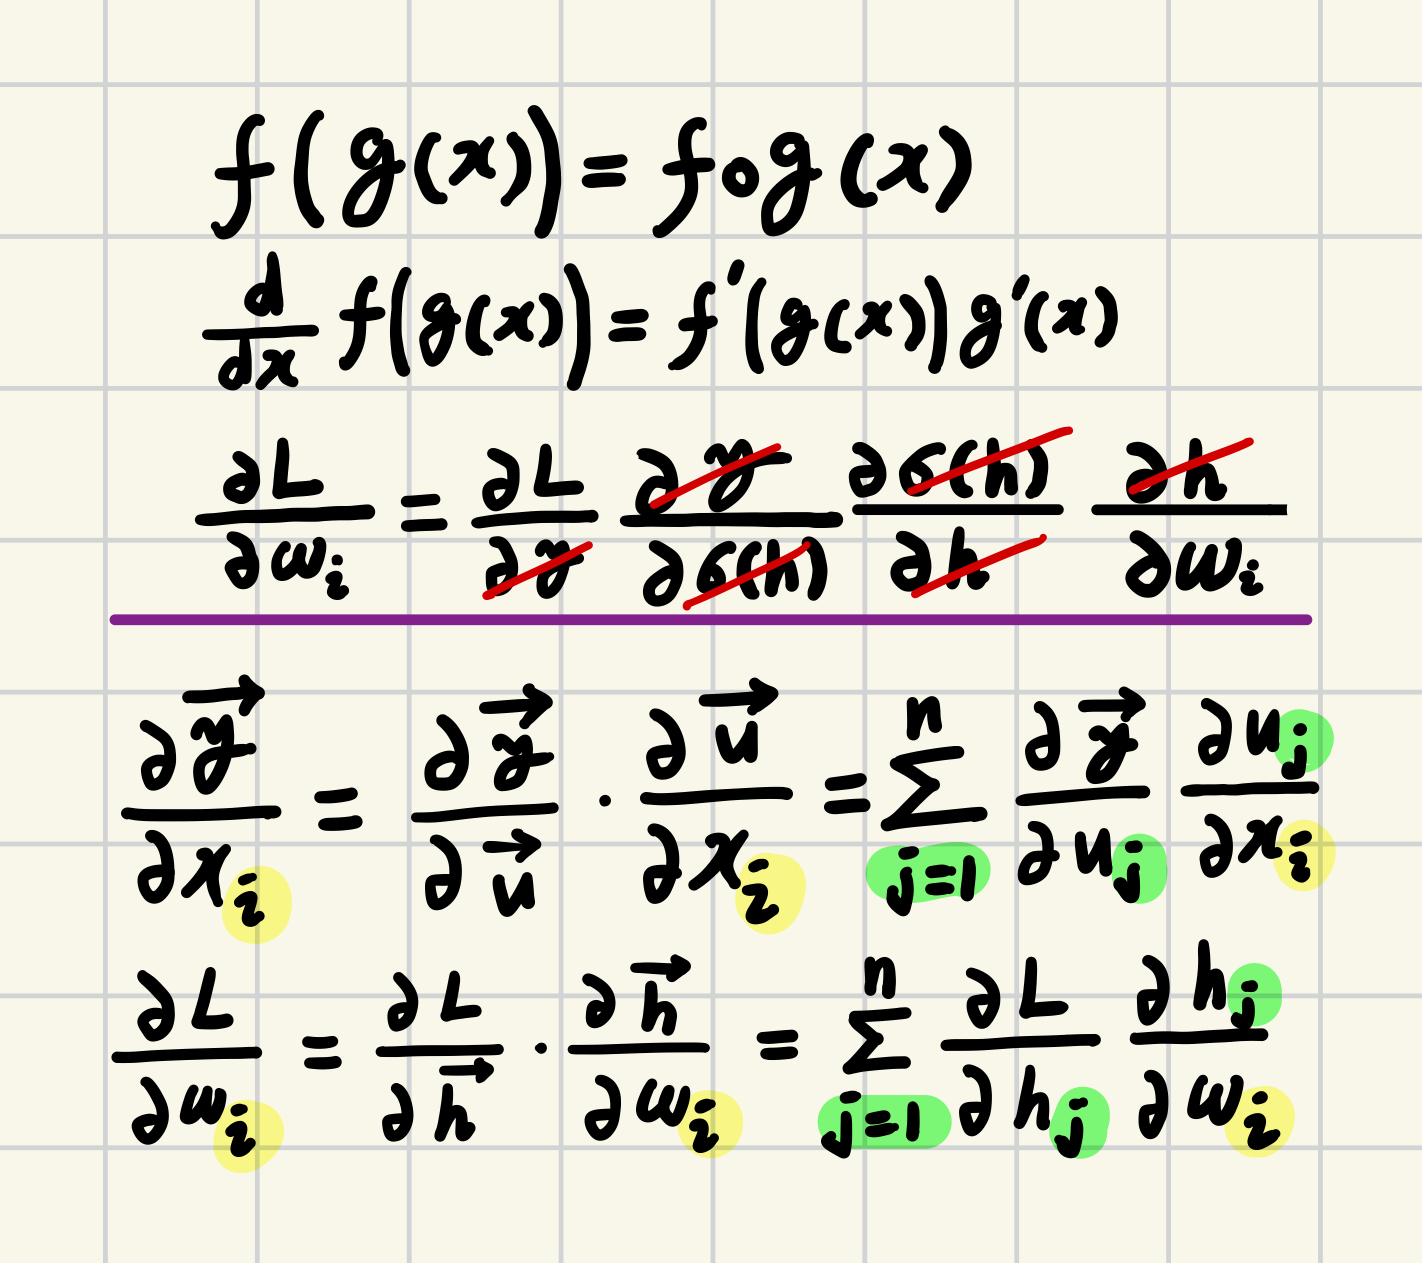 f(g(x)) = f∘g(x)
d/dx f(g(x)) = f'(g(x)) g'(x)
∂L/∂w_i = ∂L/∂y ∂y/∂σ(h) ∂σ(h)/∂h ∂h/∂w_i
∂y⃗/∂x_i = ∂y⃗/∂u⃗ · ∂u⃗/∂x_i = Σ_{j=1}^{n} ∂y⃗/∂u_j ∂u_j/∂x_i
∂L/∂w_i = ∂L/∂h⃗ · ∂h⃗/∂w_i = Σ_{j=1}^{n} ∂L/∂h_j ∂h_j/∂w_i